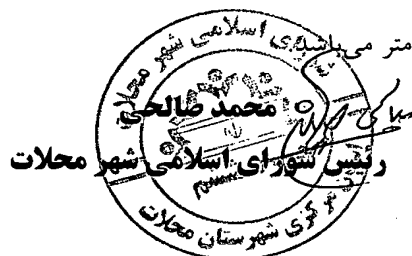 متر می‌باشد.
محمد صالحی
رئیس شورای اسلامی شهر محلات
شورای اسلامی شهر محلات
مرکزی شهرستان محلات